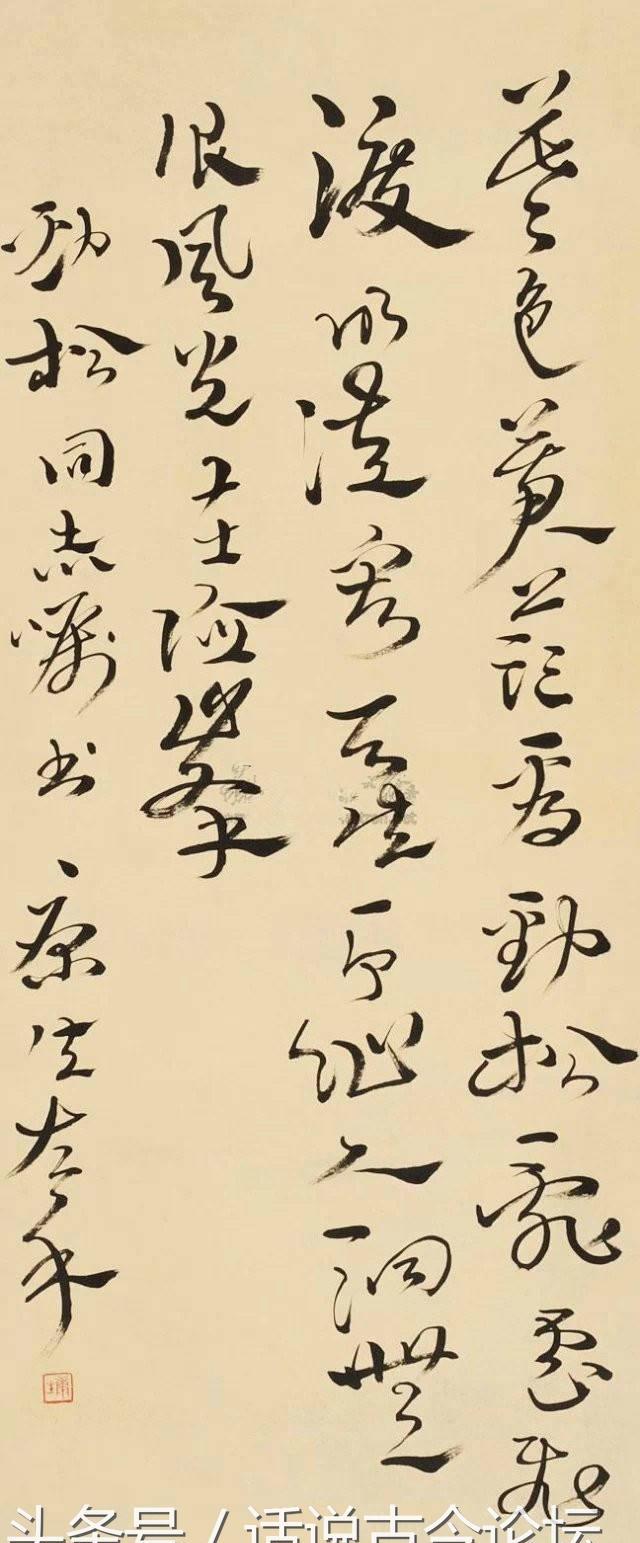 暮色苍茫看劲松乱云飞
渡仍从容天生一个仙人洞无
限风光在险峰
劲松同志嘱书 康生左手
头条号 / 话说古今论坛